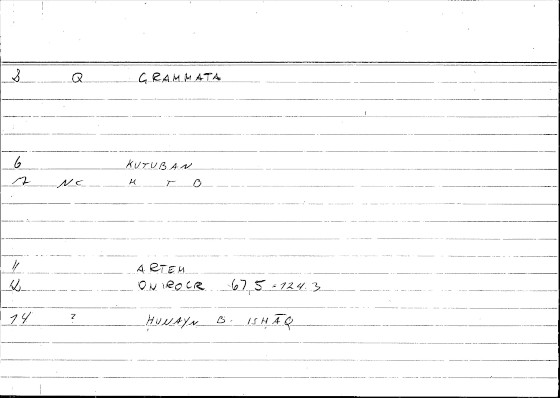 3 Q GRAMMATA
6 KUTUBAN
7 NC K T B
11 ARTEM
12 ONIROCR 67,5 = 124.3
14 ? ḤUNAYN B. ISḤĀQ